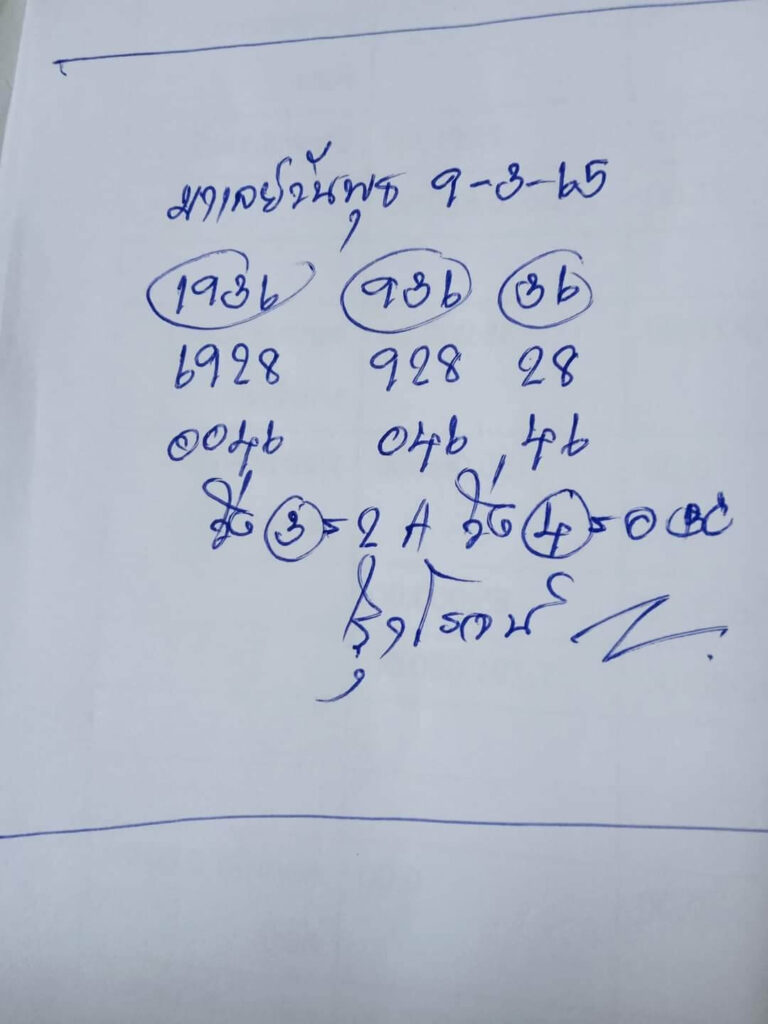 มาเลย์วันพุธ 9-3-65
1936 936 36
6928 928 28
0046 046, 46
วิ่ง 3 = 2 A วิ่ง 4 = 0 BC
รุ่งโรจน์